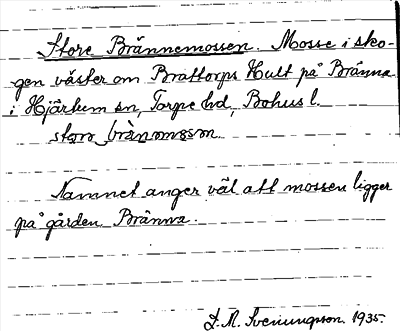 Store Brännemossen. Mosse i sko-
gen väster om Brattorps Hult på Bränna
i Hjärtum sn, Torpe hd, Bohus l.
storə brànəmɔsən
Namnet anger väl att mossen ligger
på gården Bränna.
J. M. Svenungsson. 1935.